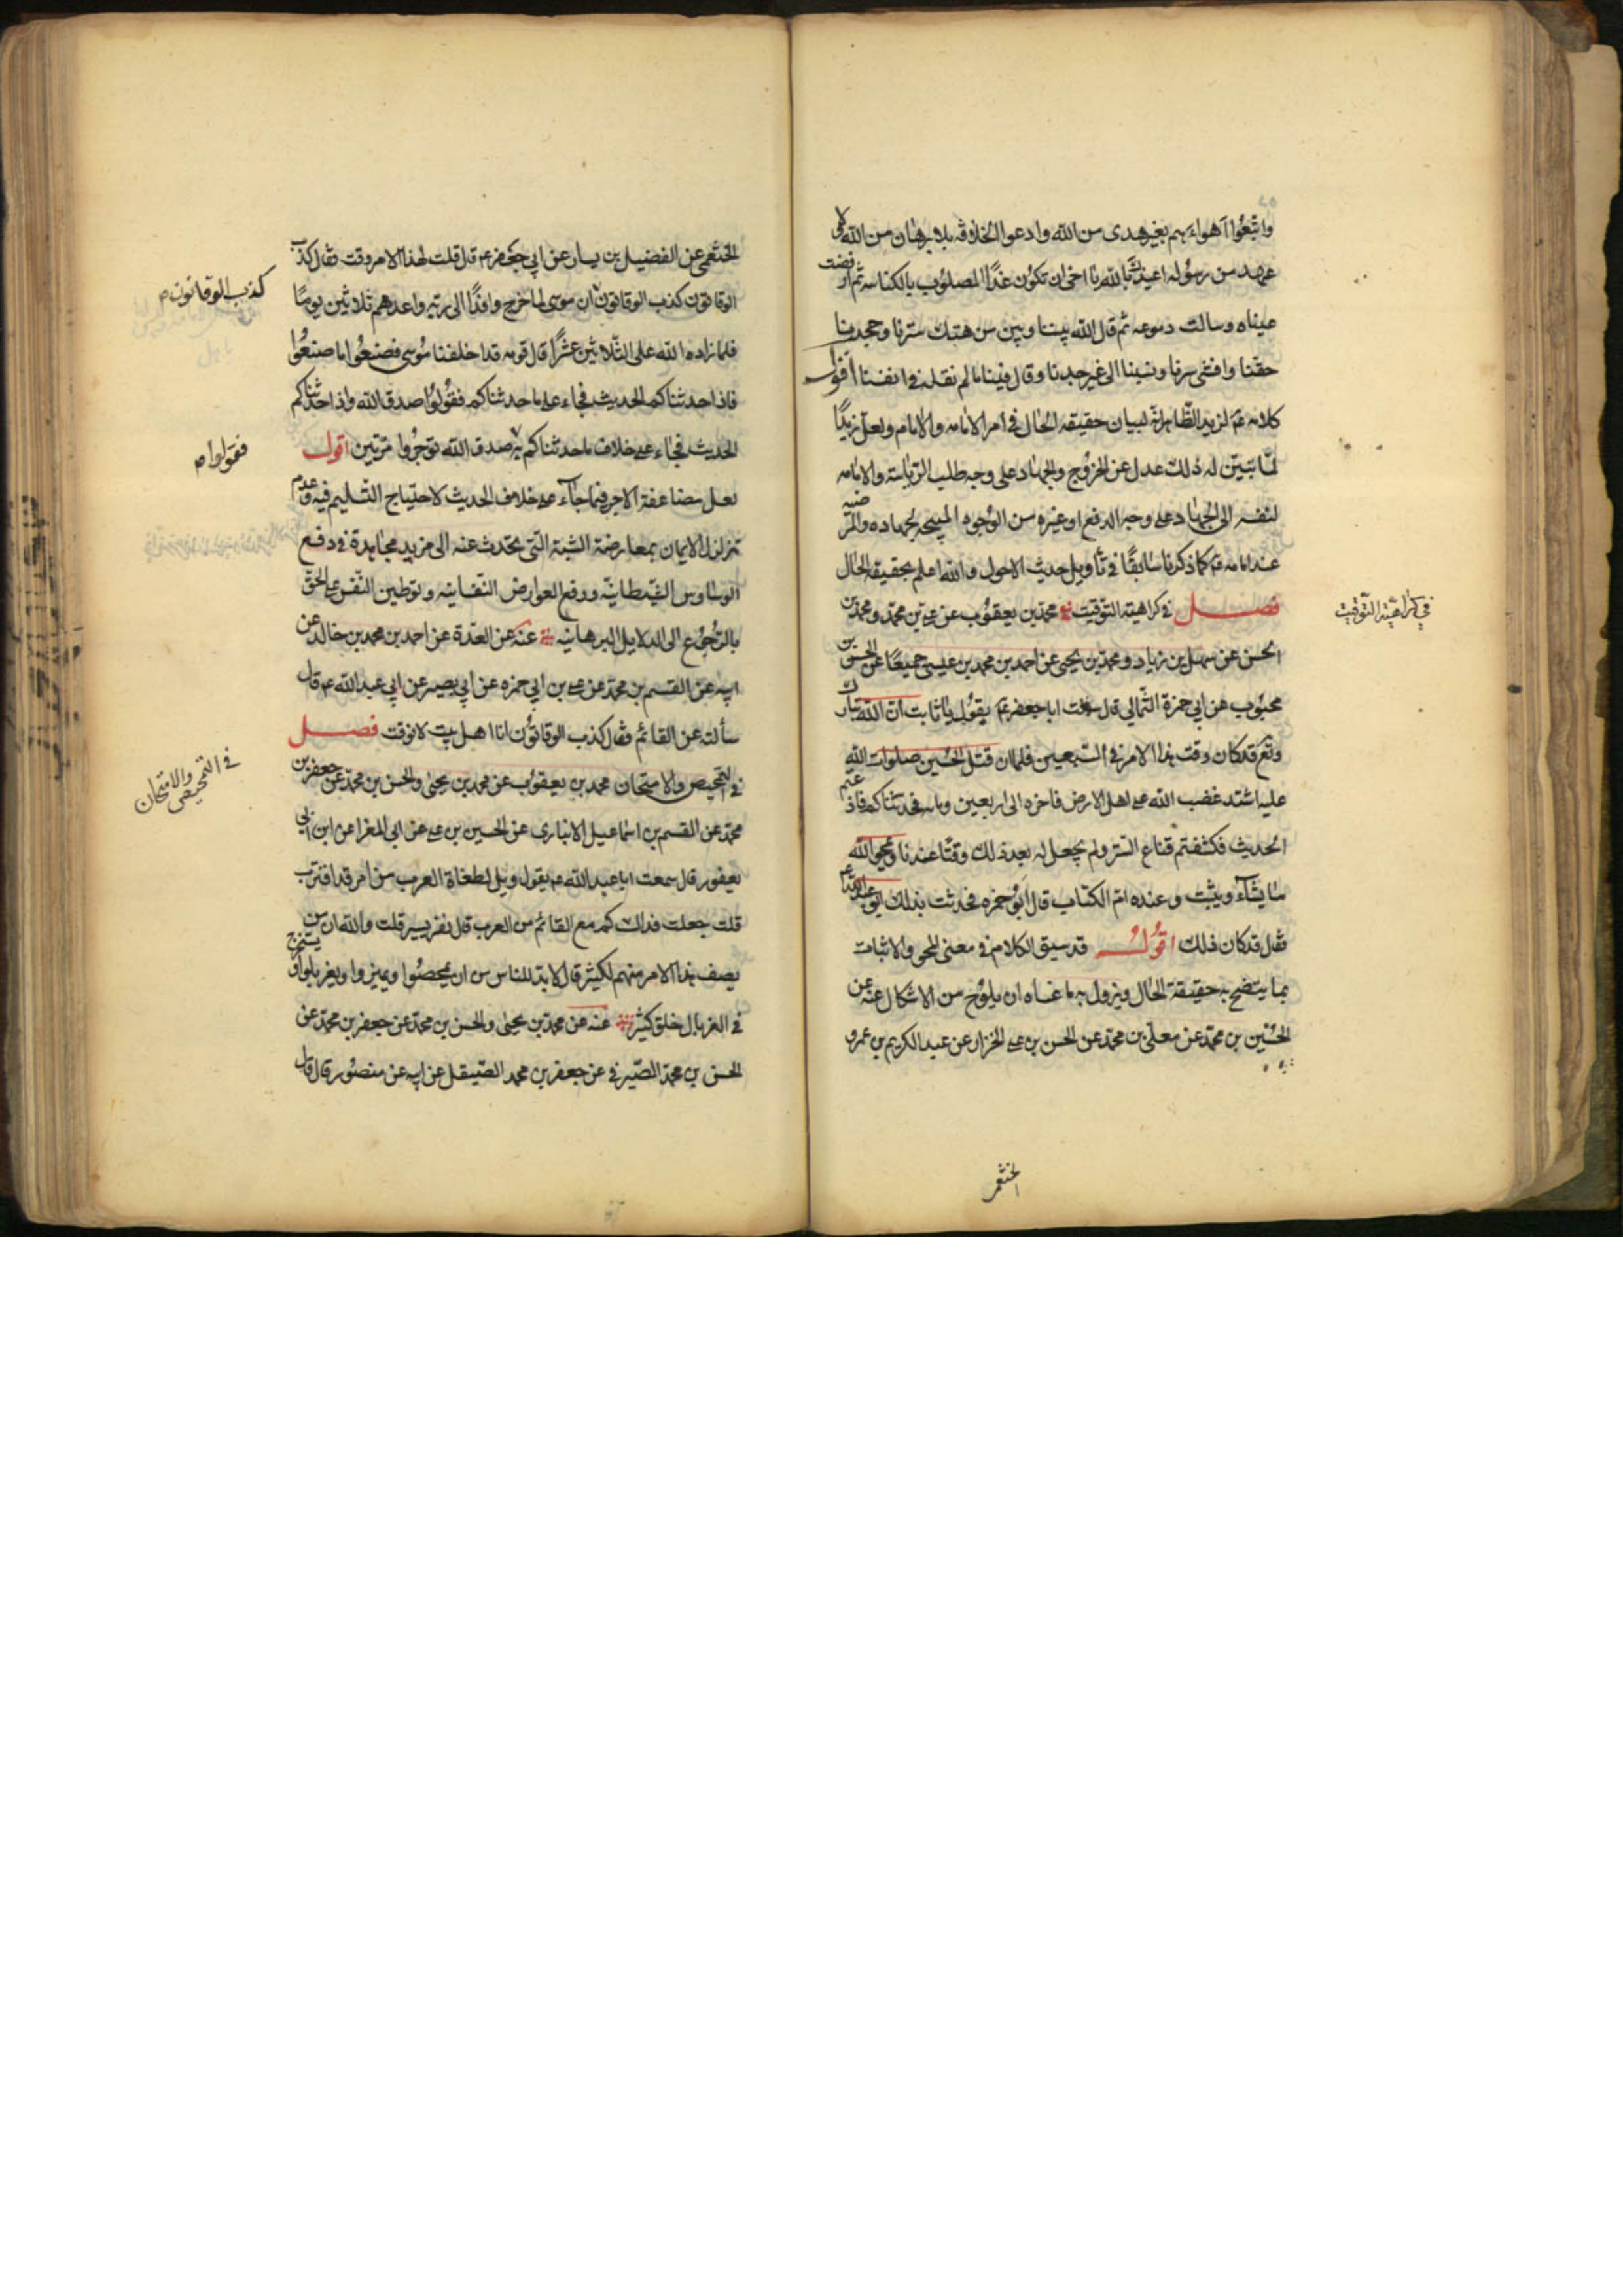 واتبعوا اهواءهم بغير هدى من الله وادعوا الخلافة بلا برهان من الله ولا
عهد من رسوله اعيذك بالله يا اخي ان تكون غدا المصلوب بالكناسه ثم ارفضت
عيناه وسالت دموعه ثم قال الله بيننا وبين من هتك سترنا وجحدنا
حقنا وافشى سرنا ونسبنا الى غير جدنا وقال فينا ما لم نقله في انفسنا اقول
كلامه عم لزيد الظاهر انه لبيان حقيقه الحال في امر الامامه والامام ولعل زيدا
لما تبين له ذلك عدل عن الخروج والجهاد على وجه طلب الرياسة والامامه
لنفسه الى الجهاد على وجه الدفع او غيره من الوجوه المبيحه لجهاده والمرضيه
عند امامه عم كما ذكرنا سابقا في تأويل حديث الاحول والله اعلم بحقيقه الحال
فصل في كراهية التوقيت محمد بن يعقوب عن علي بن محمد ومحمد بن
الحسن عن سهل بن زياد ومحمد بن يحيى عن احمد بن محمد بن عيسى جميعا عن الحسن بن
محبوب عن ابي حمزة الثمالي قال سمعت ابا جعفر عم يقول يا ثابت ان الله تبارك
وتع قد كان وقت هذا الامر في السبعين فلما ان قتل الحسين صلوات الله
عليه اشتد غضب الله على اهل الارض فاخره الى اربعين ومايه فحدثناكم فاذعتم
الحديث فكشفتم قناع الستر ولم يجعل له بعد ذلك وقتا عندنا ويمحو الله
ما يشاء ويثبت وعنده ام الكتاب قال ابو حمزه فحدثت بذلك ابو عبد الله عم
فقال قد كان ذلك اقول قد سبق الكلام في معنى المحو والاثبات
بما يتضح به حقيقة الحال ويزول به ما عساه ان يلوح من الاشكال عنه عن
الحسين بن محمد عن معلى بن محمد عن الحسن بن علي الخزار عن عبد الكريم بن عمرو
الخثعمي
في كراهية التوقيت
الخثعمي عن الفضيل بن يسار عن ابي جعفر عم قال قلت لهذا الامر وقت فقال كذب
الوقاتون كذب الوقاتون ان موسى لما خرج وافدا الى ربه واعدهم ثلاثين يوما
فلما زاده الله على الثلاثين عشرا قال قومه قد اخلفنا موسى فصنعوا ما صنعوا
فاذا حدثناكم الحديث فجاء على ما حدثناكم فقولوا صدق الله واذا حدثناكم
الحديث فجاء على خلاف ما حدثناكم به صدق الله توجروا مرتين اقول
لعل مضاعفة الاجر فيما جاء على خلاف الحديث لاحتياج التسليم فيه وعدم
تزلزل الايمان بمعارضة الشبهة التي يحدث عنه الى مزيد مجاهدة في دفع
الوساوس الشيطانية ورفع العوارض النفسانيه وتوطين النفس على الحق
بالرجوع الى الدلايل البرهانيه عنه عن العدة عن احمد بن محمد بن خالد عن
ابيه عن القسم بن محمد عن علي بن ابي حمزه عن ابي بصير عن ابي عبد الله عم قال
سألته عن القائم فقال كذب الوقاتون انا اهل بيت لا نوقت فصل
في التمحيص والامتحان محمد بن يعقوب عن محمد بن يحيى والحسن بن محمد عن جعفر بن
محمد عن القسم بن اسماعيل الانباري عن الحسين بن علي عن ابي المغرا عن ابن ابي
يعفور قال سمعت ابا عبد الله عم يقول ويل لطغاة العرب من امر قد اقترب
قلت جعلت فداك كم مع القائم من العرب قال نفر يسير قلت والله ان من
يصف هذا الامر منهم لكثير قال لا بد للناس من ان يمحصوا ويميزوا ويغربلوا ويستخرج
في الغربال خلق كثير عنه عن محمد بن يحيى والحسن بن محمد عن جعفر بن محمد عن
الحسن بن محمد الصيرفي عن جعفر بن محمد الصيقل عن ابيه عن منصور قال قال
كذب الوقاتون م
فقولوا م
في التمحيص والامتحان